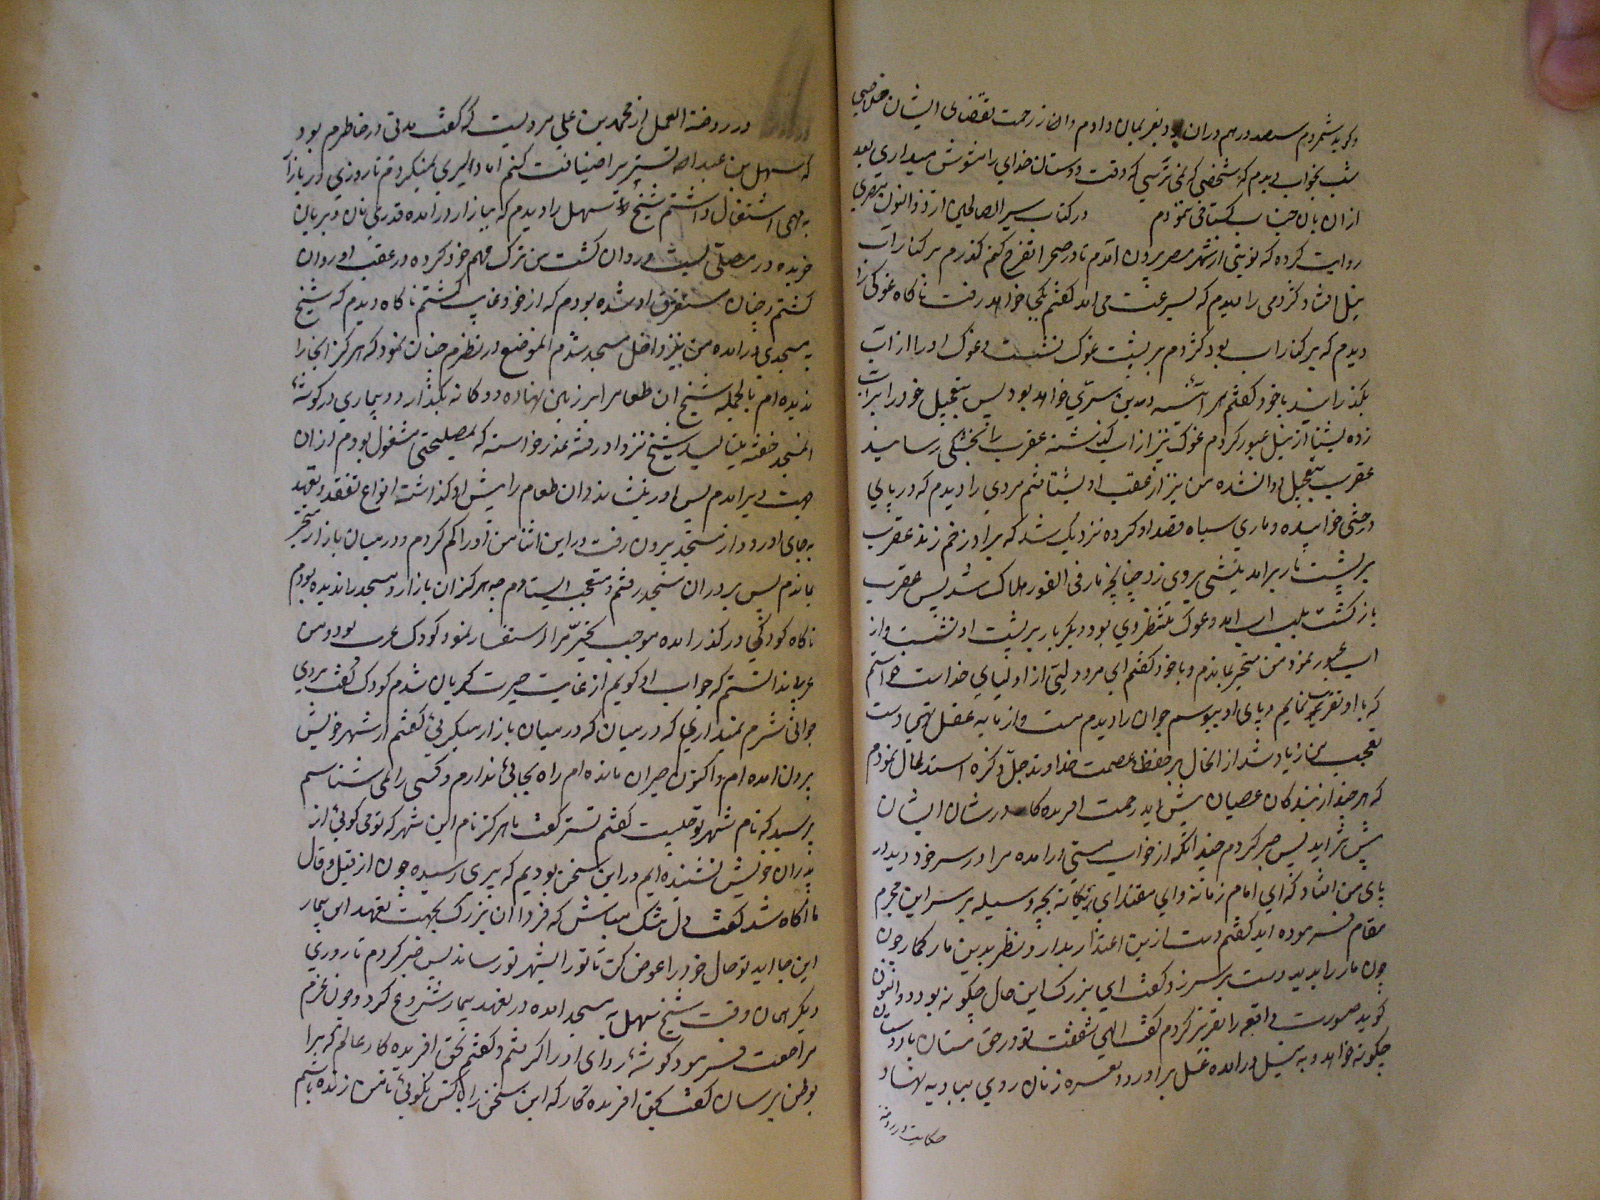 و گوید شمردم سیصد درهم دران بود بفریمان دادم وان زر رحمت تقضای ایشان خلاصی
شب بخواب دیدم که شخصی که نمی ترسی که وقت دوستان خدای را مشوش میداری بعد
ازان بان جناب گستاخی ننمودم در کتاب سیر الصالحین از ذوالنون مصری
روایت کرده که نوبتی از شهر مصر بیرون آمدم تا در صحرا تفرج کنم گذرم بر کنار اب
نیل افتاد کژدمی را دیدم که بسرعت می امد گفتم بکجا خواهد رفت ناگاه غوکی را
دیدم که بر کنار اب بود کژدم بر پشت غوک نشست و غوک او را از اب
بگذرانید با خود گفتم هر آئینه درین سرّی خواهد بود پس بتعجیل خود را بر اب
زده بشنا از نیل عبور کردم غوک نیز از اب گذشته عقرب را بخشکی رسانید
عقرب بتعجیل روان شده من نیز از عقب او بشتافتم مردی را دیدم که در پای
درختی خوابیده و ماری سیاه قصد او کرده نزدیک شد که بر او زخم زند عقرب
بر پشت مار برامد نیشی بروی زد چنانچه مار فی الفور هلاک شد پس عقرب
بازگشت بلب اب امد و غوک منتظر وی بود دیگر بار بر پشت او نشست و از
اب عبور نمود من متحیر بماندم و با خود گفتم این مرد ولیّی از اولیای خداست خواستم
که با او تقرب نمایم و پای او ببوسم جوان را دیدم مست و از مایه عقل تهی دست
تعجب من زیاد شد از انحال بر حفظ و عصمت خداوند جل ذکره استدلال نمودم
که هر چند از بندگان عصیان بیش اید رحمت افریدگار در شان ایشان
بیش تر اید پس صبر کردم چندانکه از خواب مستی درامده مرا در سر خود دید در
پای من افتاد که ای امام زمانه و ای مقتدای یگانه بچه وسیله بر سر این مجرم
مقام فرموده اید گفتم دست ازین اعتذار بدار و نظر بدین مار گمار چون
چون مار را بدید دست بر سر زد و گفت ای بزرگ این حال چگونه بود ذوالنون
گوید صورت واقعه را تقریر کردم گفت الهی شفقت تو در حق مستان با دوستان
چگونه خواهد بود به نیل درامده غسل براورد و نعره زنان روی ببادیه نهاد
حکایت در روضة
در روضة العمل از محمد بن علی مرویست که گفت مدتی در خاطرم بود
که سهل بن عبدالله تستری را ضیافت کنم اما دلیری نمیکردم تا روزی در بازار
به مهمی اشتغال داشتم شیخ سهل را دیدم که ببازار درامده قدری نان و بریان
خریده در مصلّی بست و روان گشت من ترک مهم خود کرده در عقب او روان
گشتم و چنان مستغرق او شده بودم که از خود غایب گشتم ناگاه دیدم که شیخ
به مسجدی درامده من نیز داخل مسجد شدم الموضع در نظرم چنان نمود که هرگز انجا را
ندیده ام بالجمله شیخ ان طعام را بر زمین نهاده دوگانه بگذارد و بیماری در گوشهٔ
المسجد خفته مینالید شیخ نزد او رفته عذر خواست که بمصلحتی مشغول بودم ازان
جهت دیر امدم پس او را بنشاند وان طعام را پیش او گذاشت انواع تفقد و تعهد
به جای اورد و از مسجد بیرون رفت در این اثنا من او را گم کردم و در میان بازار متحیر
بماندم پس بر در ان مسجد رفتم و متعجب ایستادم چه هرگز ان بازار و مسجد را ندیده بودم
ناگاه کودکی در گذر امده موجب تحیّر مرا استفسار نمود کودک عرب بود و من
عربی ندانستم که جواب او گویم از غایت حیرت گریان شدم کودک گفت مردی
جوانی شرم نمیداری که در میان که در میان بازار میگریی گفتم از شهر خویش
بیرون امده ام و اکنون حیران مانده ام راه بجائی ندارم و کسی را نمی شناسم
پرسید که نام شهر تو چیست گفتم تستر گفت ما هرگز نام این شهر که تو می گوئی از
پدران خویش نشنیده ایم در این سخن بودیم که پیری رسیده چون از قیل و قال
ما اگاه شد گفت دل تنگ مباش که فردا ان بزرگ بجهت تعهد این بیمار
این جا اید تو حال خود را عرض کن تا تو را بشهر تو رساند پس صبر کردم تا روزی
دیگر همان وقت شیخ سهل به مسجد امده در تعهد بیمار شروع کرد و چون عزم
مراجعت فرمود گوشهٔ ردای او را گرفتم و گفتم بحق افریدگار عالم که مرا
بوطن برسان گفت بحق افریدگار که این سخن را با کس نگوئی تا من زنده باشم